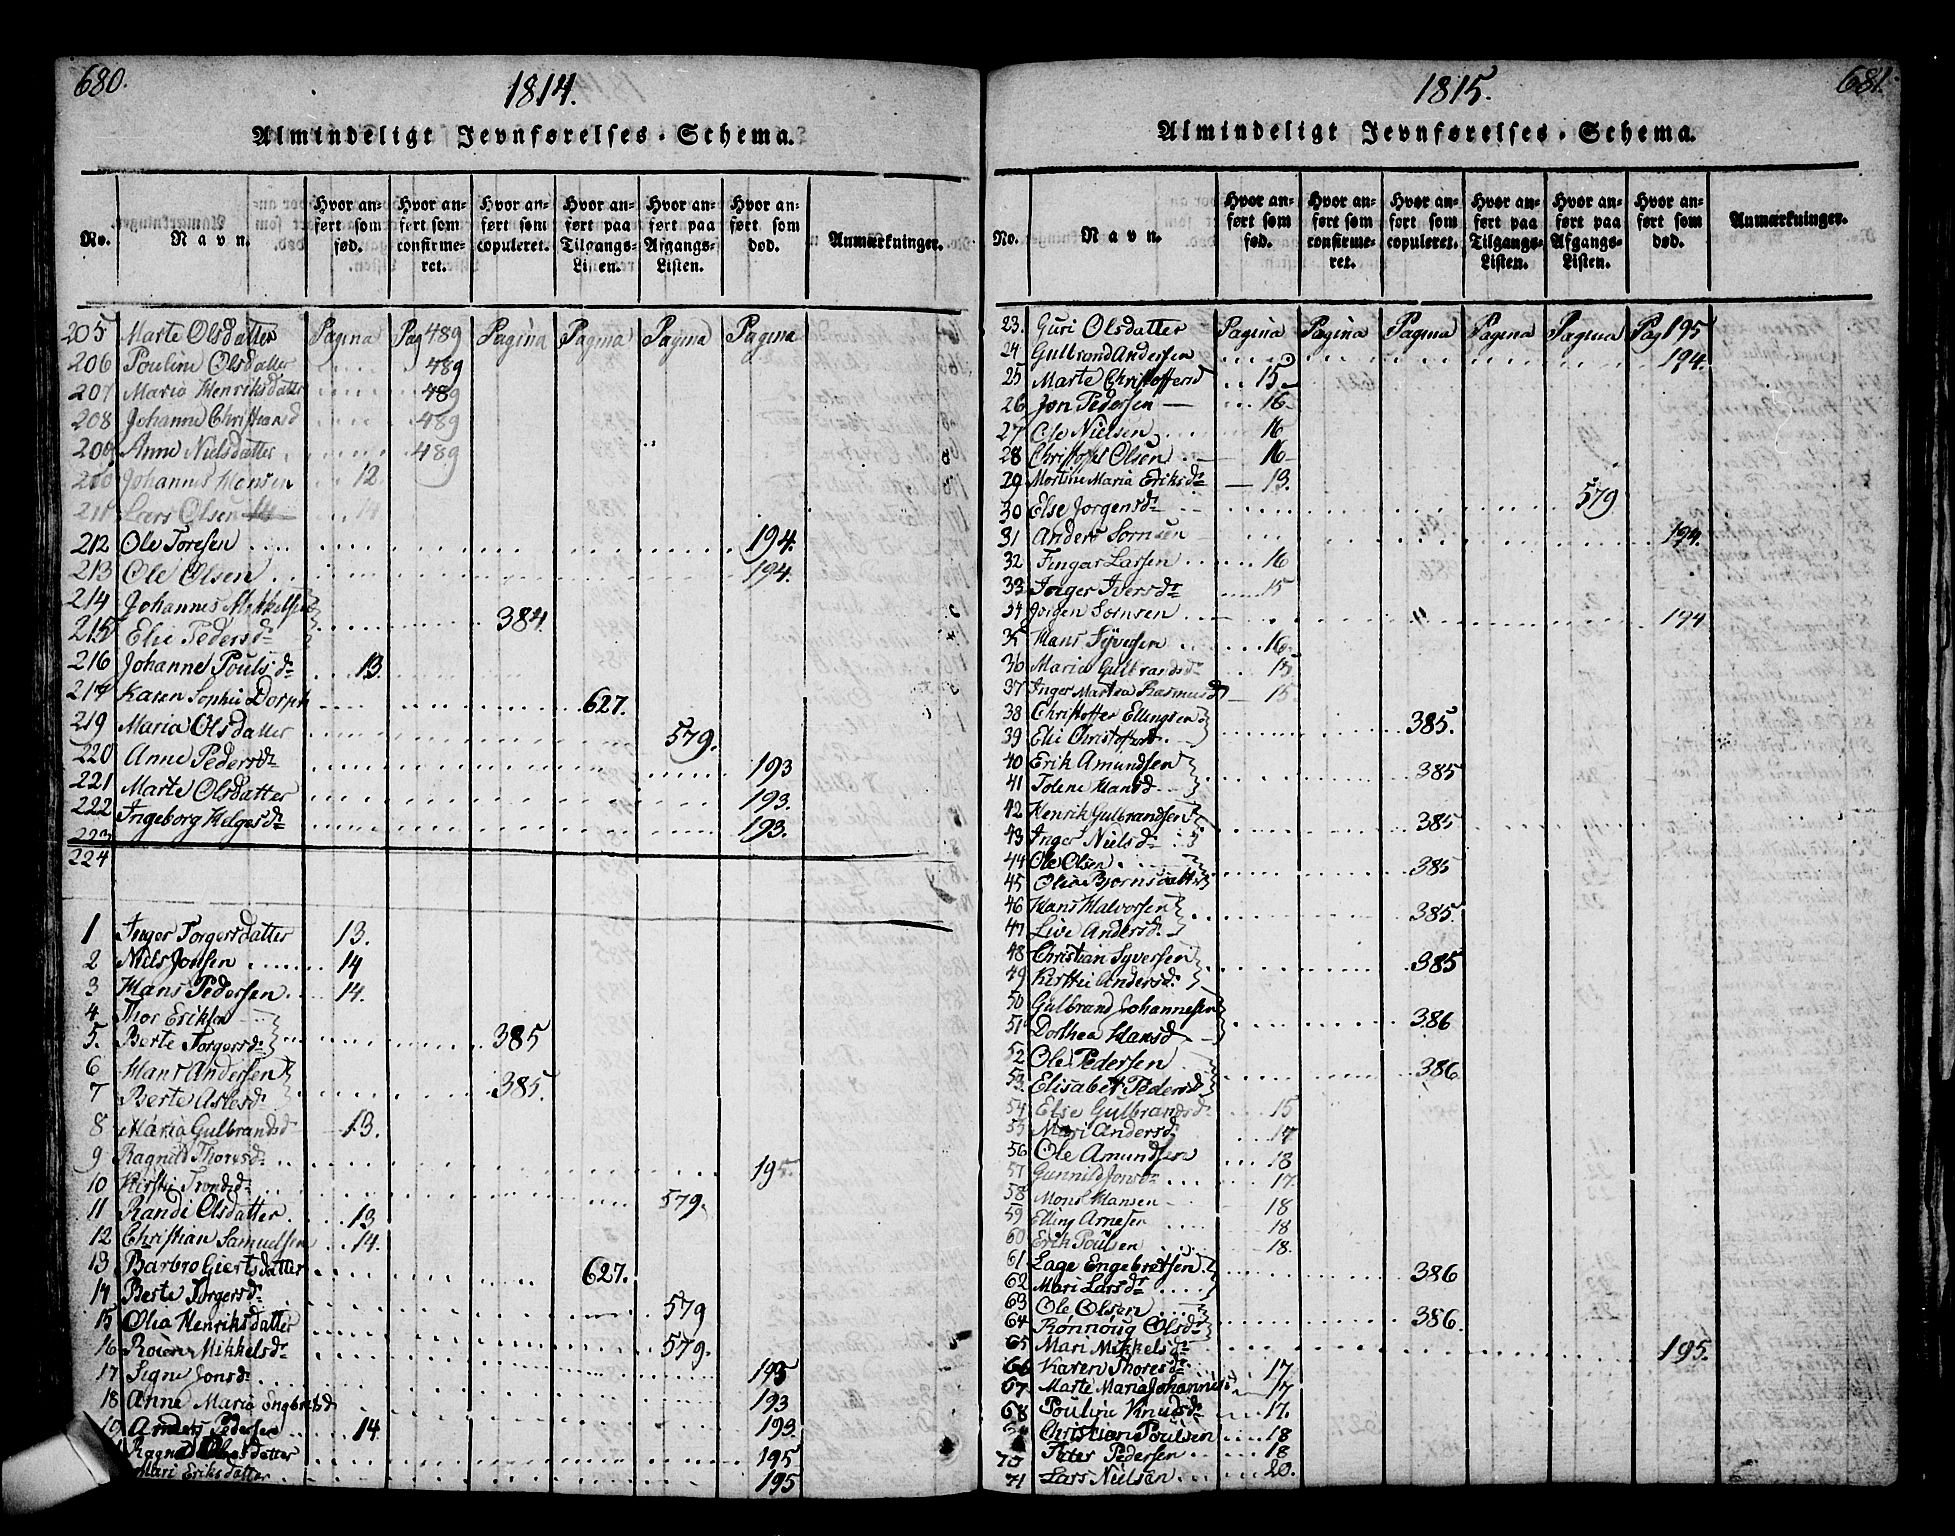 680.
1814.
Almindeligt Jevnførelses-Schema.
No. Navn. Hvor anført som fød. Hvor anført som confirmeret. Hvor anført som copuleret. Hvor anført paa Tilgangs-Listen. Hvor anført paa Afgangs-Listen. Hvor anført som død. Anmærkninger.
205 Marte Olsdatter Pagina Pag 489 Pagina Pagina Pagina Pagina
206 Pouline Olsdatter 489
207 Maria Henriksdatter 489
208 Johanne Christiansd 489
209 Anne Nielsdatter 489
210 Johannes Hansen 12.
211 Lars Olsen 14
212 Ole Toresen 194.
213 Ole Olsen 194.
214 Johannes Mikkelsen
215 Elie Pedersdr 384.
216 Johanne Poulsdr 13.
217 Karen Sophie Dorph 627.
219 Maria Olsdatter 579.
220 Anne Pedersdr 193
221 Marte Olsdatter 193.
222 Ingeborg Helgesdr 193.
223
224
1 Inger Torgersdatter 13.
2 Niels Jonsen 14
3 Hans Pedersen 14.
4 Thor Eriksen
5. Berte Torgersdr 385
6 Hans Andersen
7 Berte Aslesdr 385.
8 Maria Gulbrandsd 13.
9 Ragnild Thoresdr 195.
10 Kirsti Trondsdr 579.
11 Randi Olsdatter 13
12 Christian Samuelsen 14.
13 Barbro Giertsdatter 627.
14 Berte Torgersdr 579
15 Olia Henriksdatter 579.
16 Mikkelsdr
17 Signe Jonsdr 193
18 Anne Maria Engbretsd 193
19 Anders Pedersen 14 193
Ragnild Olsdatter 195
Mari Eriksdatter 195
681.
1815.
Almindeligt Jevnførelses-Schema.
No. Navn. Hvor anført som fød. Hvor anført som confirmeret. Hvor anført som copuleret. Hvor anført paa Tilgangs-Listen. Hvor anført paa Afgangs-Listen. Hvor anført som død. Anmærkninger.
23. Guri Olsdatter Pagina Pagina Pagina Pagina Pagina Pag 195
24 Gulbrand Andersen 194.
25 Marte Christoffersd 15
26 Jon Pedersen 16
27 Ole Nielsen 16
28 Christoffer Olsen 16
29 Mortine Maria Eriksdr 13.
30 Else Jorgensdr 579
31 Anders Sornsen 194.
32 Fingar Larsen 16
33 Inger Iversdr 15
34 Jorgen Sornsen 194
35 Hans Syversen 16.
36 Maria Gulbrandsdr 15
37 Inger Martea Rasmusd 15
38 Christoffer Ellingsen
39 Elie Christoffersdr 385.
40 Erik Amundsen
41 Tolene Hansd 385
42 Henrik Gulbrandsen
43 Inger Nielsdr 385
44 Ole Olsen
45 Olia Bjornsdatter 385
46 Hans Halvorsen
47 Live Andersd. 385.
48 Christian Syversen
49 Kirstie Andersd. 385
50 Gulbrand Johannesen
51 Dorthea Hansd 386
52 Ole Pedersen
53 Elisabet Pedersd 386
54 Else Gulbrandsdr 15
55 Mari Andersd 17
56 Ole Amundsen 18
57 Gunnild Jonsdr 17.
58 Mons Hansen 18
59 Elling Arnesen 18
60 Erik Poulsen 18.
61 Lage Engebretsen
62 Mari Larsdr 386
63 Ole Olsen
64 Rønnoug Olsdr 386.
65 Mari Mikkelsdr 195.
66 Karen Thoresdr 17
67. Marte Maria Johannesd 17
68 Pouline Knudsdr 17.
Christian Poulsen 18
70 Peter Pedersen 18
71 Lars Nielsen 20.